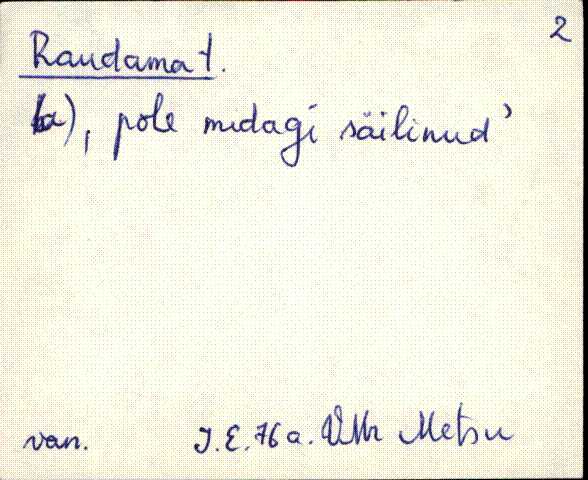 2
Raudama t.
b), pole midagi säilinud'
van. J.E. 76 a. Metsu